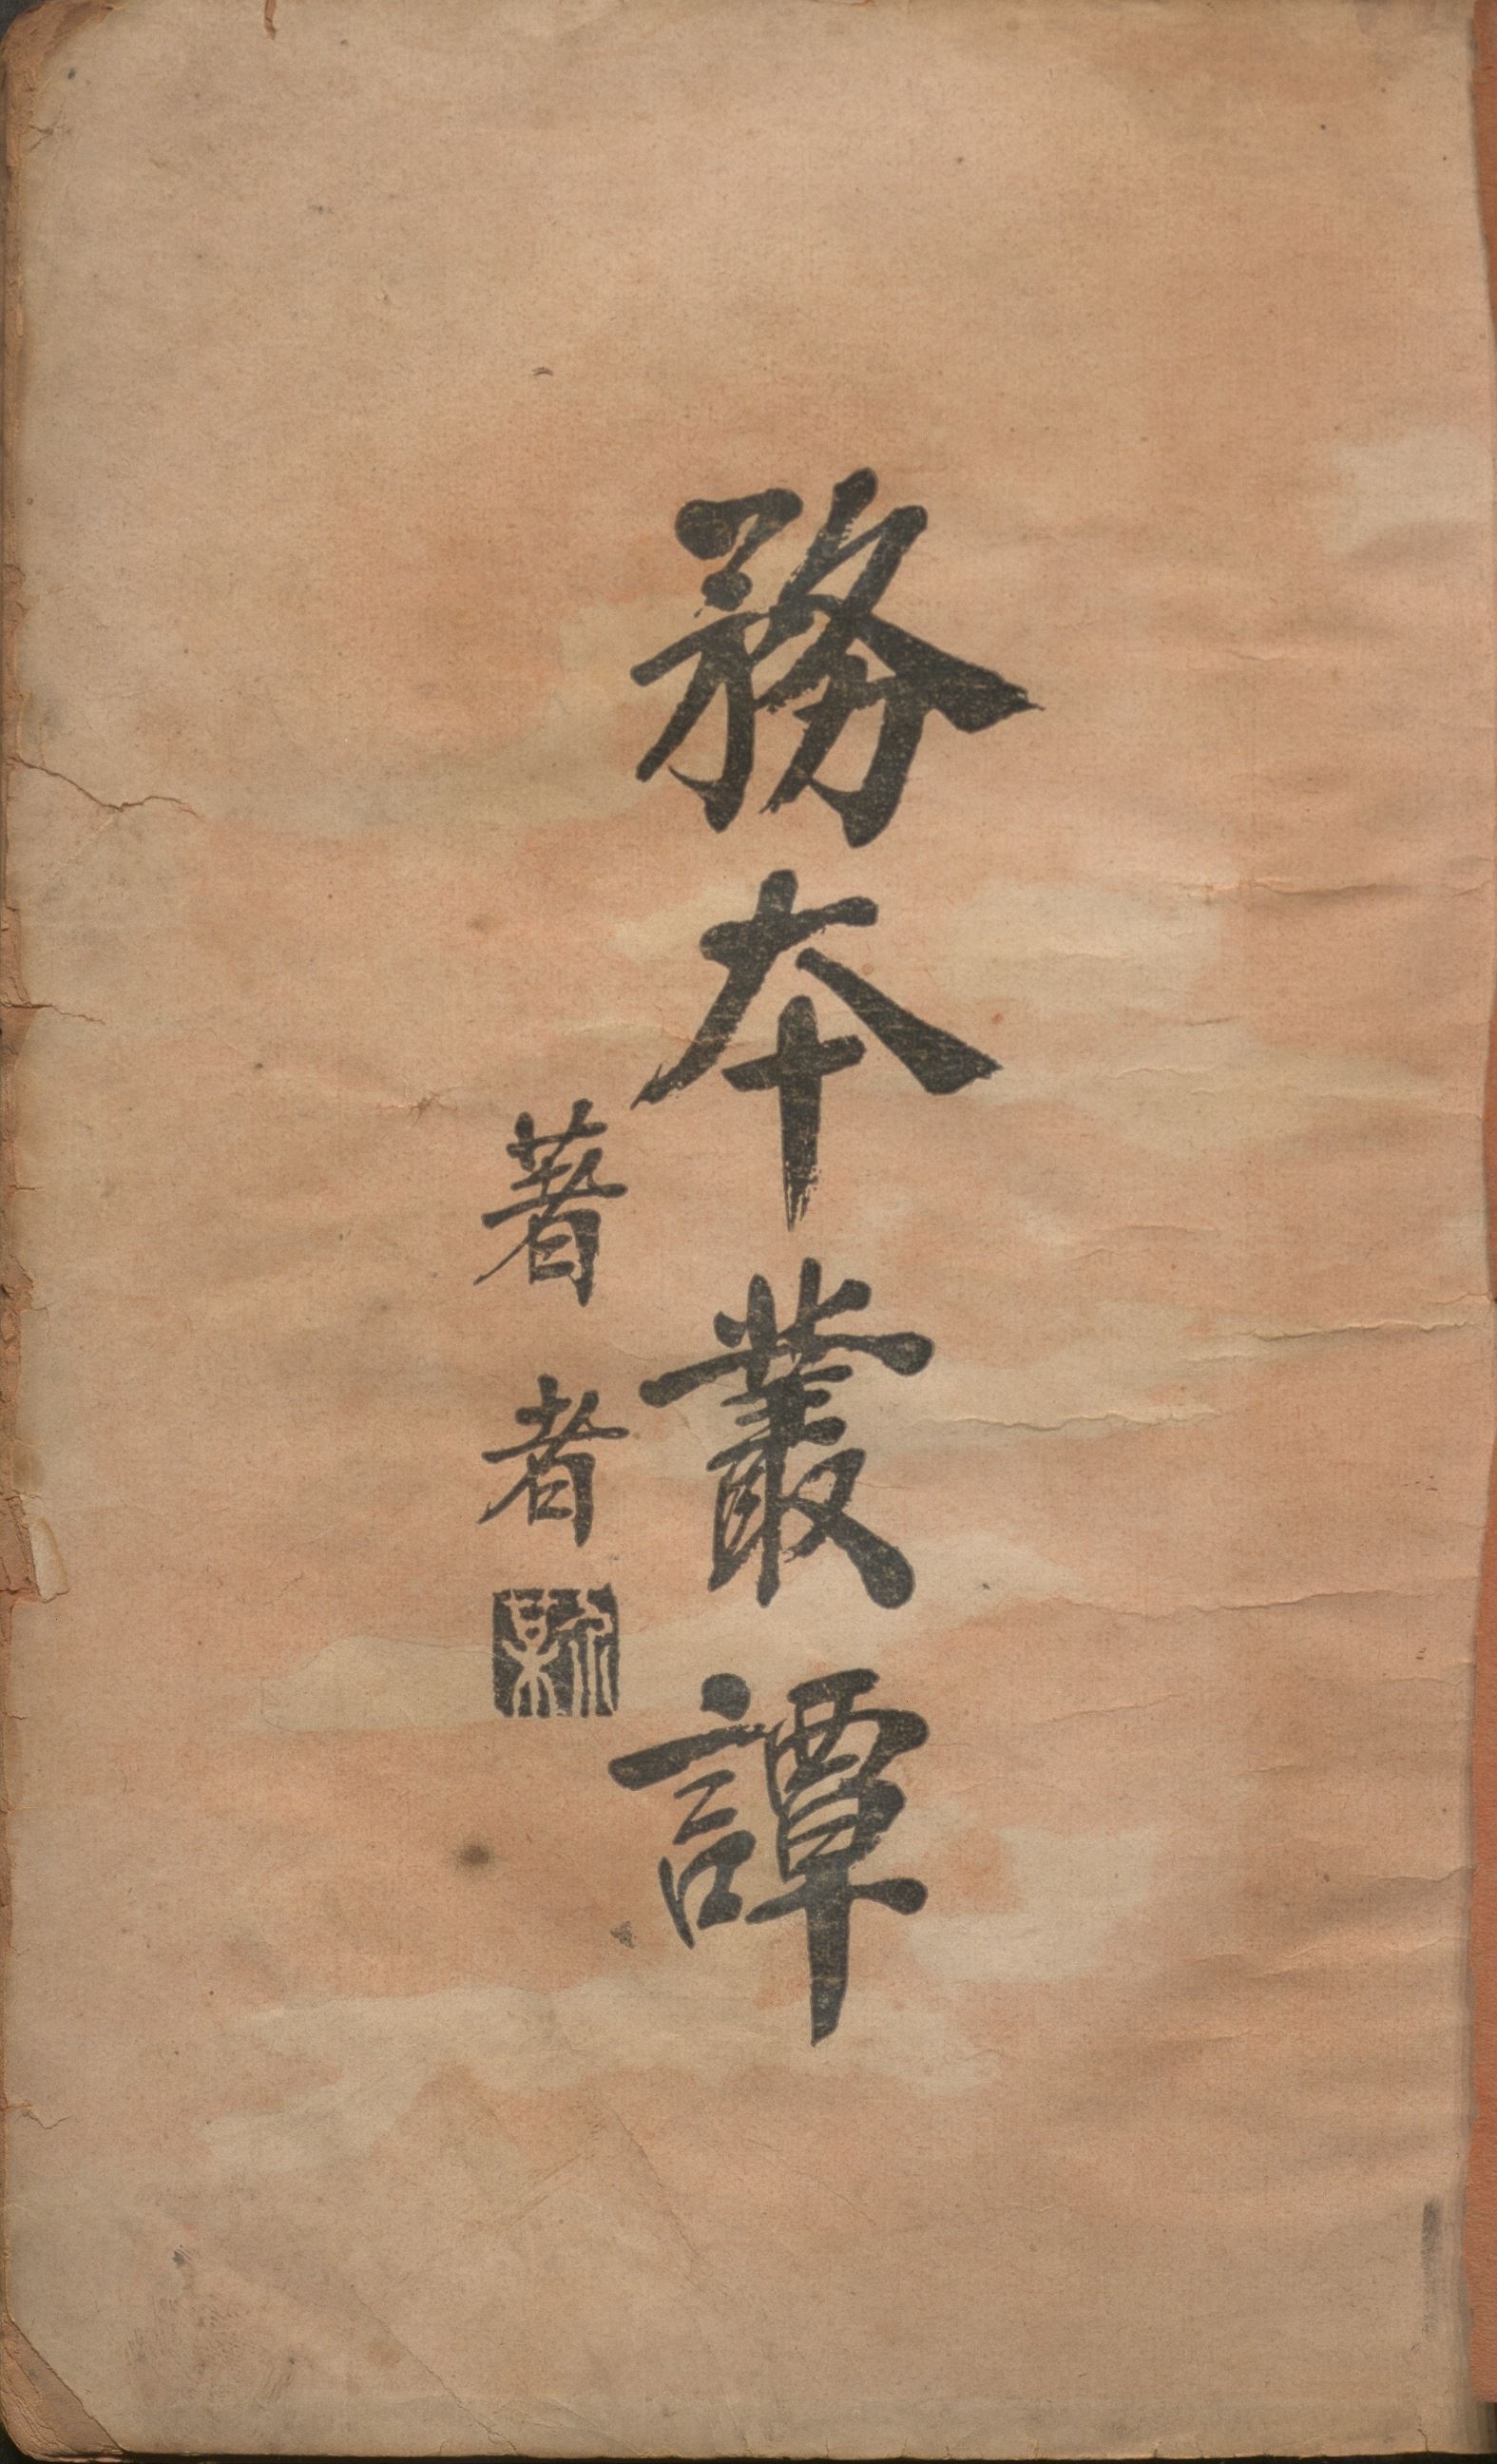 務本叢譚
著者